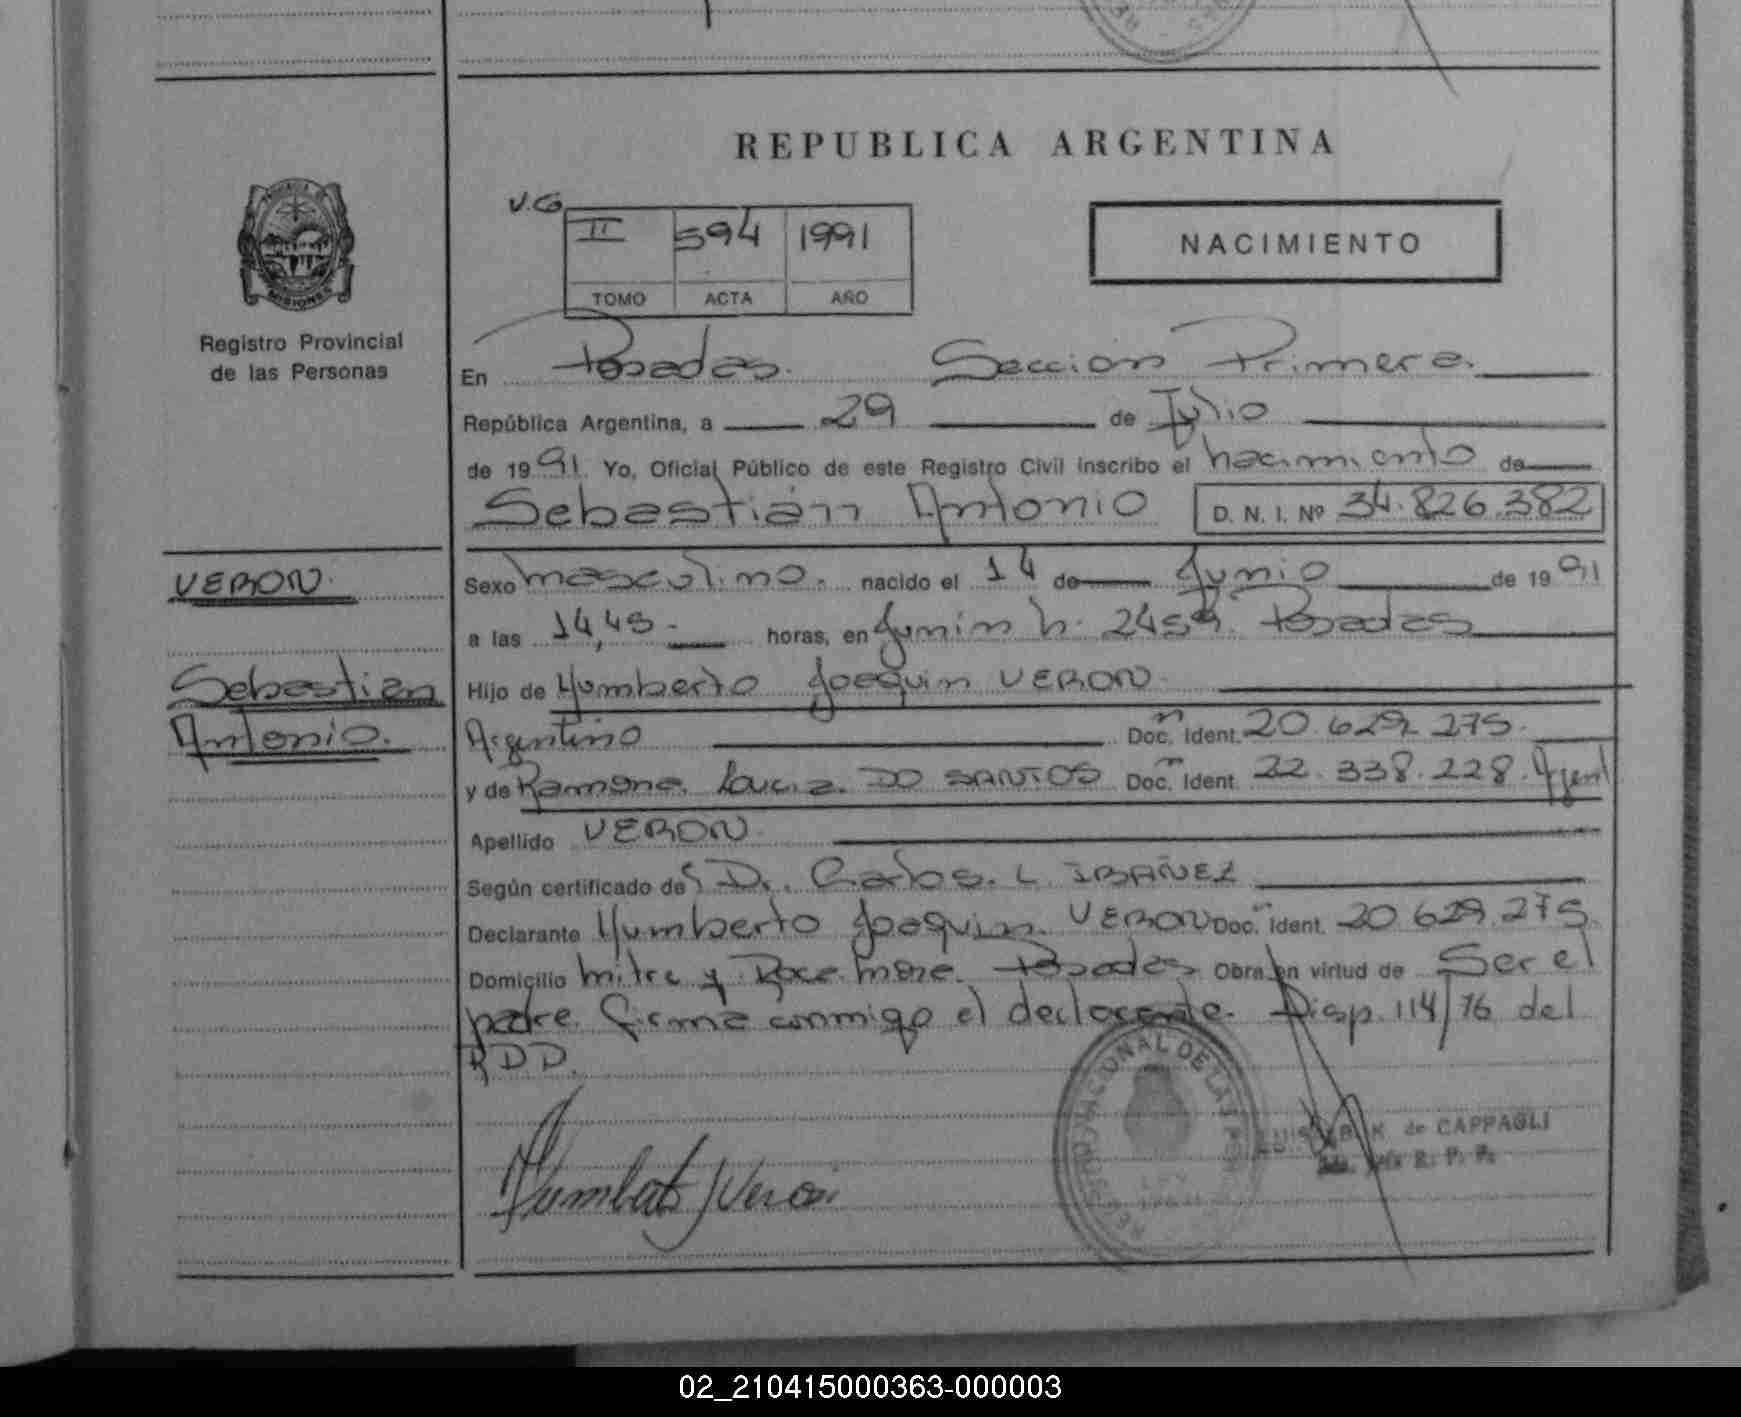 REPUBLICA ARGENTINA
V.G
II 594 1991
TOMO ACTA AÑO
NACIMIENTO
MISIONES
Registro Provincial
de las Personas
En Posadas. Sección Primera.
República Argentina, a 29 de Julio
de 1991 Yo, Oficial Público de este Registro Civil inscribo el nacimiento de
Sebastián Antonio D. N. I. Nº 34.826.382
VERON.
Sebastián
Antonio.
Sexo masculino. nacido el 14 de Junio de 1991
a las 14,45 horas, en Junín n. 2459. Posadas
Hijo de Humberto Joaquin VERON
Argentino Doc. Ident. 20.629.275.
y de Ramona Lucia DO SANTOS Doc. Ident. 22.338.228. Argent
Apellido VERON
Según certificado de Dr. Carlos. L. IBAÑEZ
Declarante Humberto Joaquin VERON Doc. Ident. 20.629.275.
Domicilio mitre y Roce more. Posadas Obra en virtud de Ser el
padre. firma conmigo el declarante. Disp. 114/76 del
RDD.
Humberto J Veron
REGISTRO NACIONAL DE LAS PER
de CAPPAGLI
R. P. P.
02_210415000363-000003